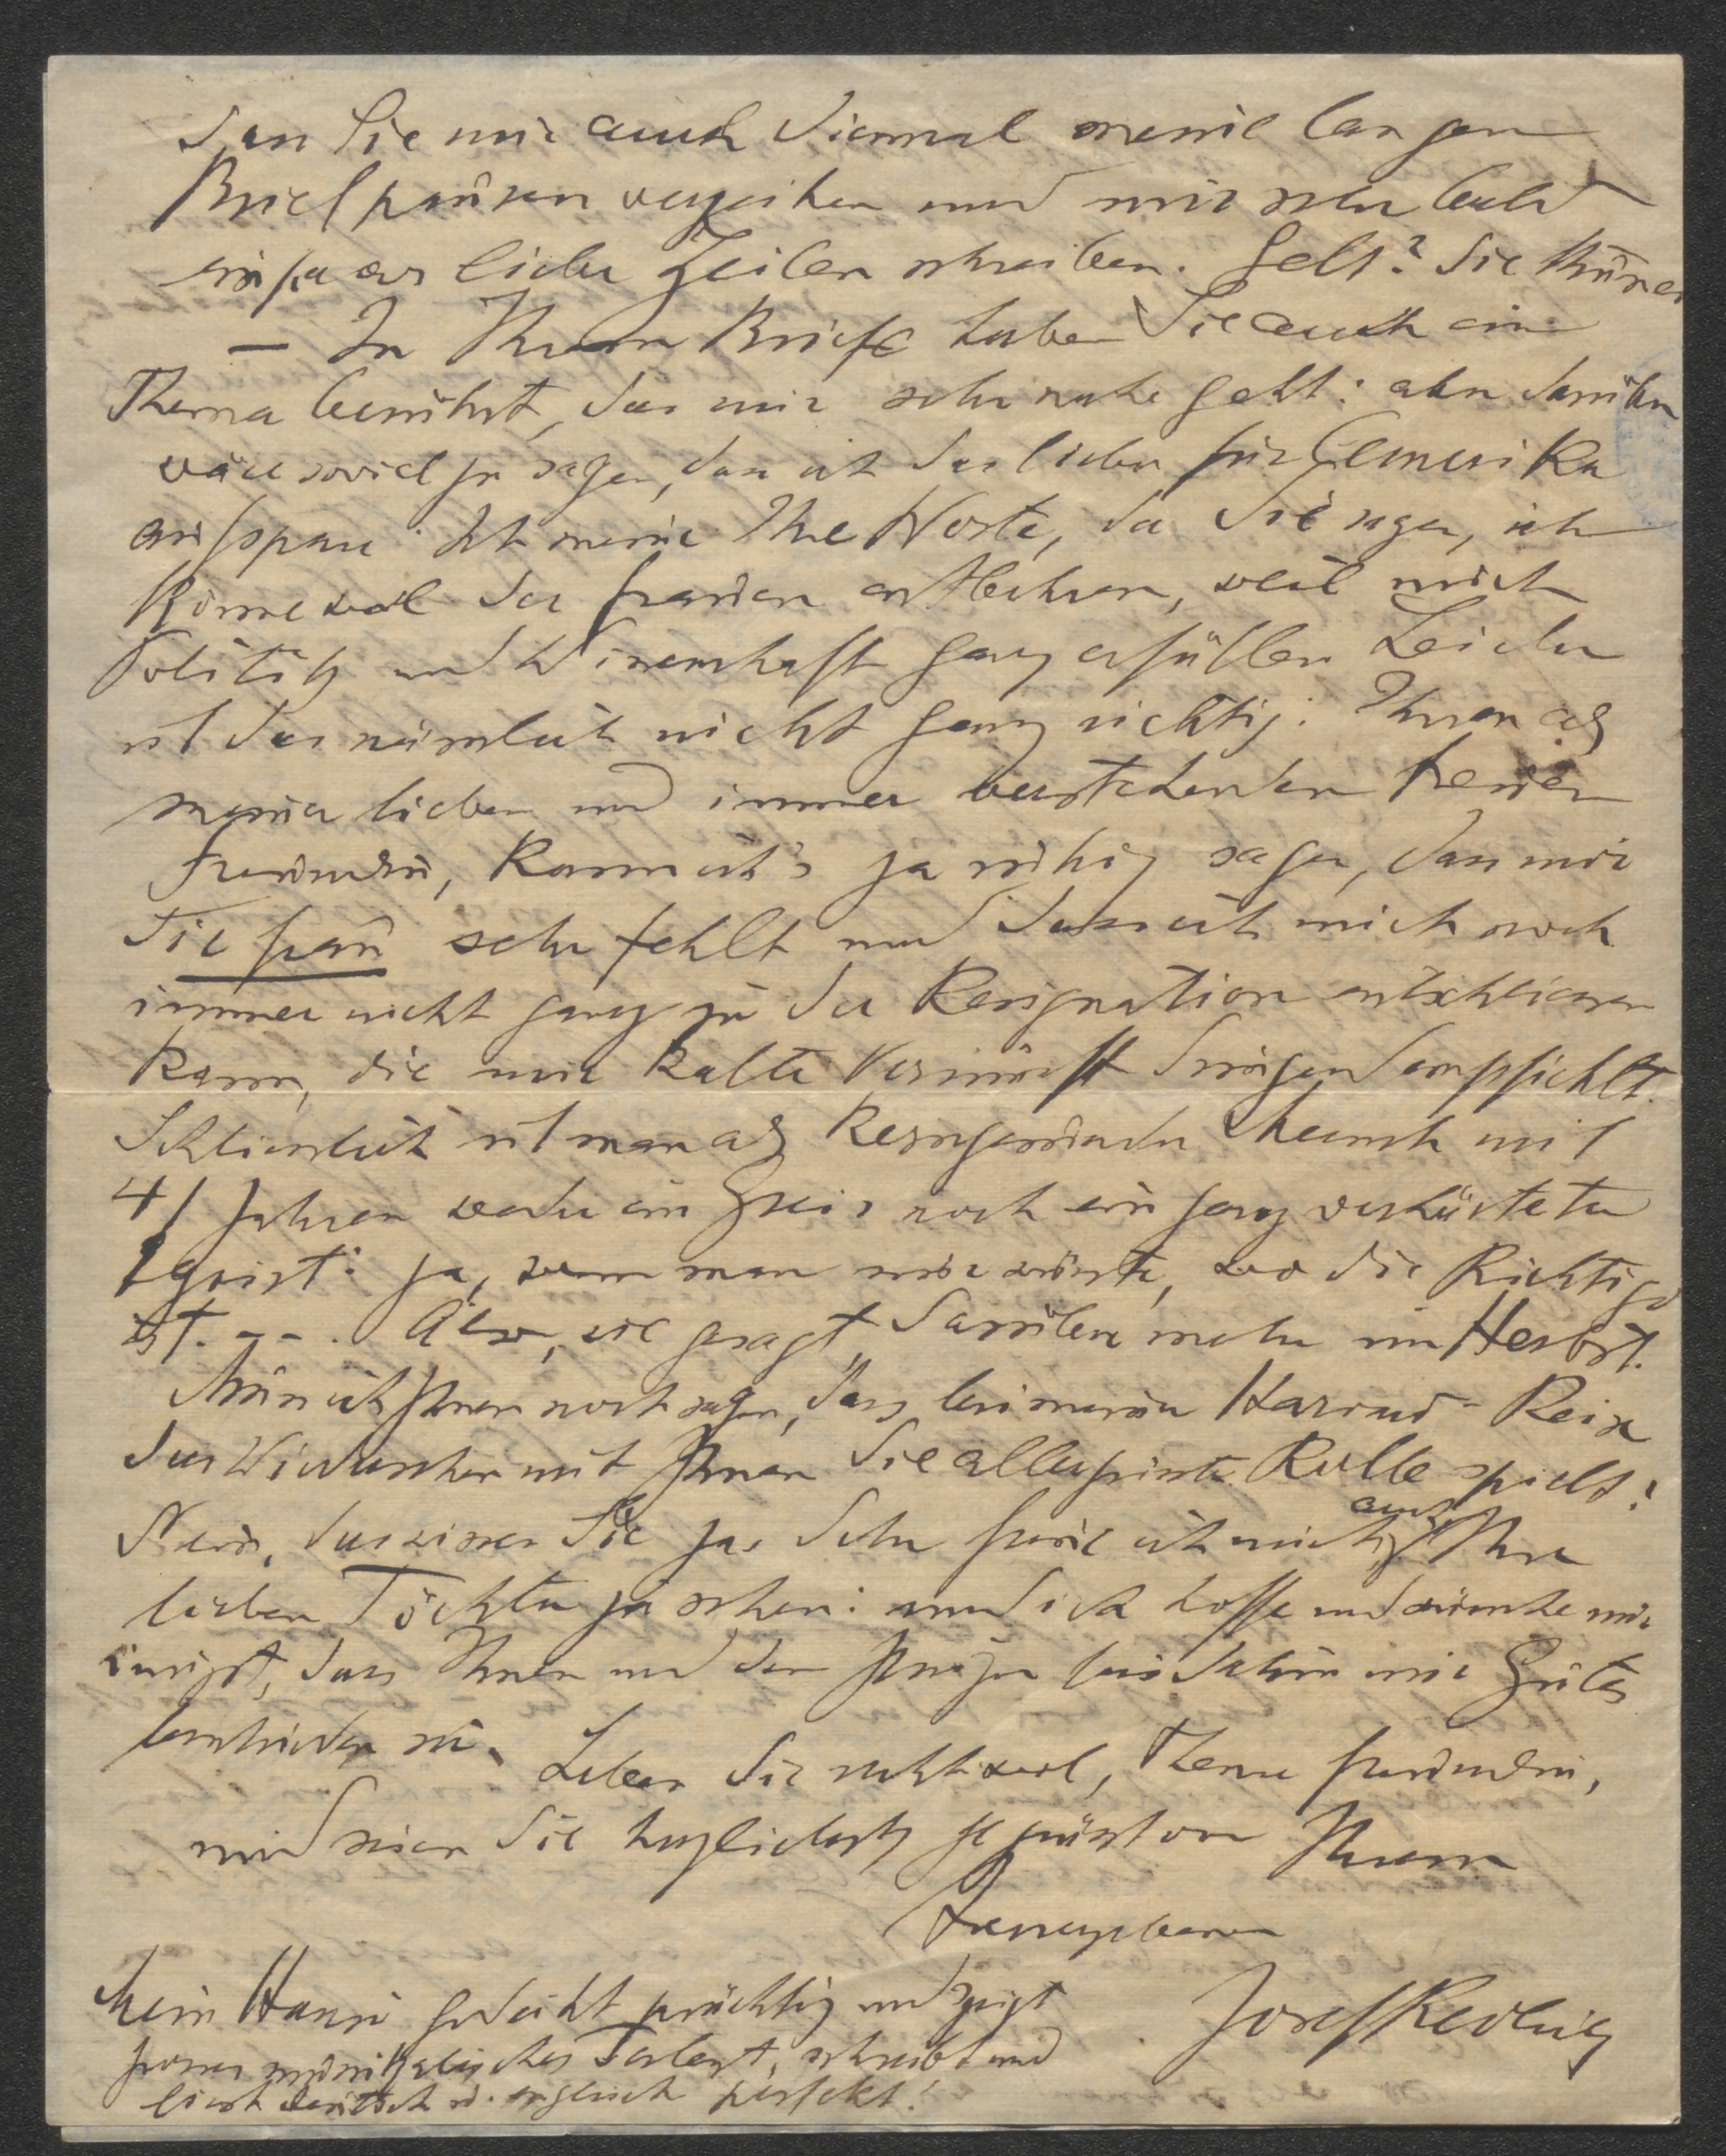 dass Sie mir auch diesmal meine langen
Briefpausen verzeihen und mir sehr bald
ein paar liebe Zeilen schreiben. Gelt? Sie thun es
— In Ihrem Briefe haben Sie auch ein
Thema berührt, das mir sehr nahe geht: aber darüber
wäre soviel zu sagen, dass ich das lieber für Amerika
aufspare. Ich meine Ihre Worte, da Sie sagen, ich
könne wol der Frauen entbehren, weil mich
Politik und Wissenschaft ganz erfüllen. Leider
ist das nämlich nicht ganz richtig: Ihnen als
meiner lieben und immer verstehenden treuen
Freundin, kann ich's ja ruhig sagen, dass mir
die Frau sehr fehlt und dass ich mich noch
immer nicht ganz zu der Resignation entschliessen
kann, die mir kalte Vernunft dringend empfiehlt.
Schliesslich ist man als kerngesunder Mensch mit
41 Jahren weder ein Greis noch ein ganz verhärteter
Egoist: ja, wenn man nur wüsste, wo die Richtige
ist. - - . Also, wie gesagt, darüber mehr im Herbst.
Muss ich Ihnen noch sagen, dass bei meiner Harvard-Reise
das Wiedersehen mit Ihnen die allergrösste Rolle spielt?
Nein, das wissen Sie ja. Sehr freue ich mich auch Ihre
lieben Töchter zu sehen: und ich hoffe und wünsche nur
innigst, dass Ihnen und den Ihrigen bis dahin nur Gutes
beschieden sei. Leben Sie recht wol, theure Freundin,
und seien Sie herzlichst gegrüsst von Ihrem
treuergebenen
Josef Redlich
Mein Hansi gedeiht prächtig und zeigt
grosses musikalisches Talent, schreibt und
liest deutsch u. englisch perfekt!